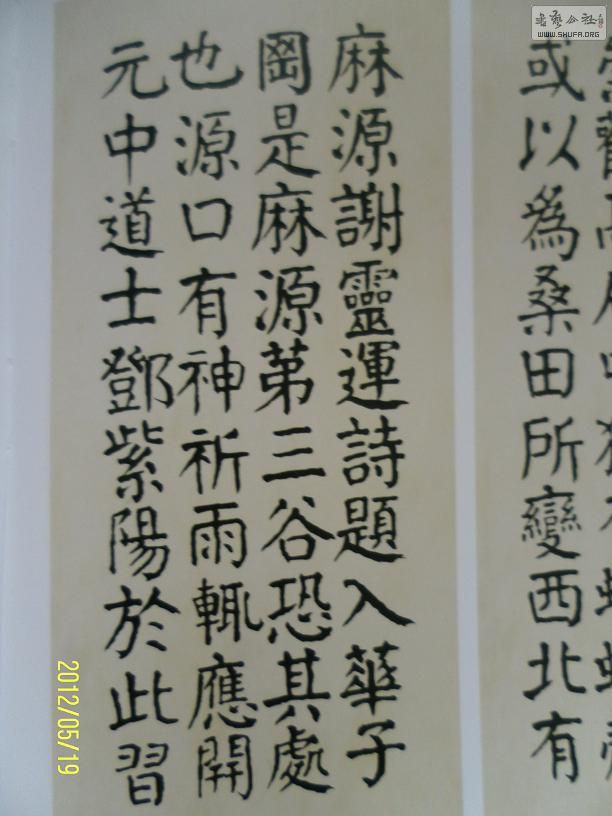 或以爲桑田所變西北有
麻源謝靈運詩題入華子
岡是麻源第三谷恐其處
也源口有神祈雨輒應開
元中道士鄧紫陽於此習
书艺公社
WWW.SHUFA.ORG
2012/05/19